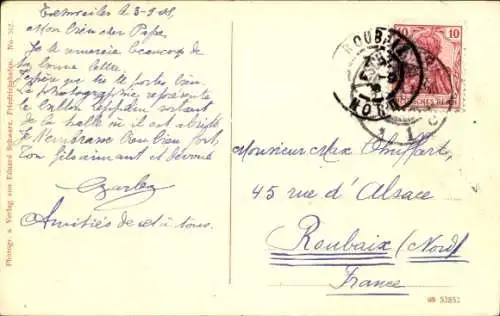 a 3-9-08
Mon bien cher Papa,
Je te remercie beaucoup de
ta bonne lettre.
J'espère que tu te portes bien.
La photographie représente
le ballon Zeppelin sortant
de la halle où il est abrité
Je t'embrasse bien fort,
Ton fils aimant et dévoué
Charles
Amitiés de et à tous.
Photogr. u. Verlag von Eduard Schwarz, Friedrichshafen. No.
ROUBAIX
NORD
10
DEUTSCHES REICH
Monsieur Max
45 rue d'Alsace
Roubaix (Nord)
France